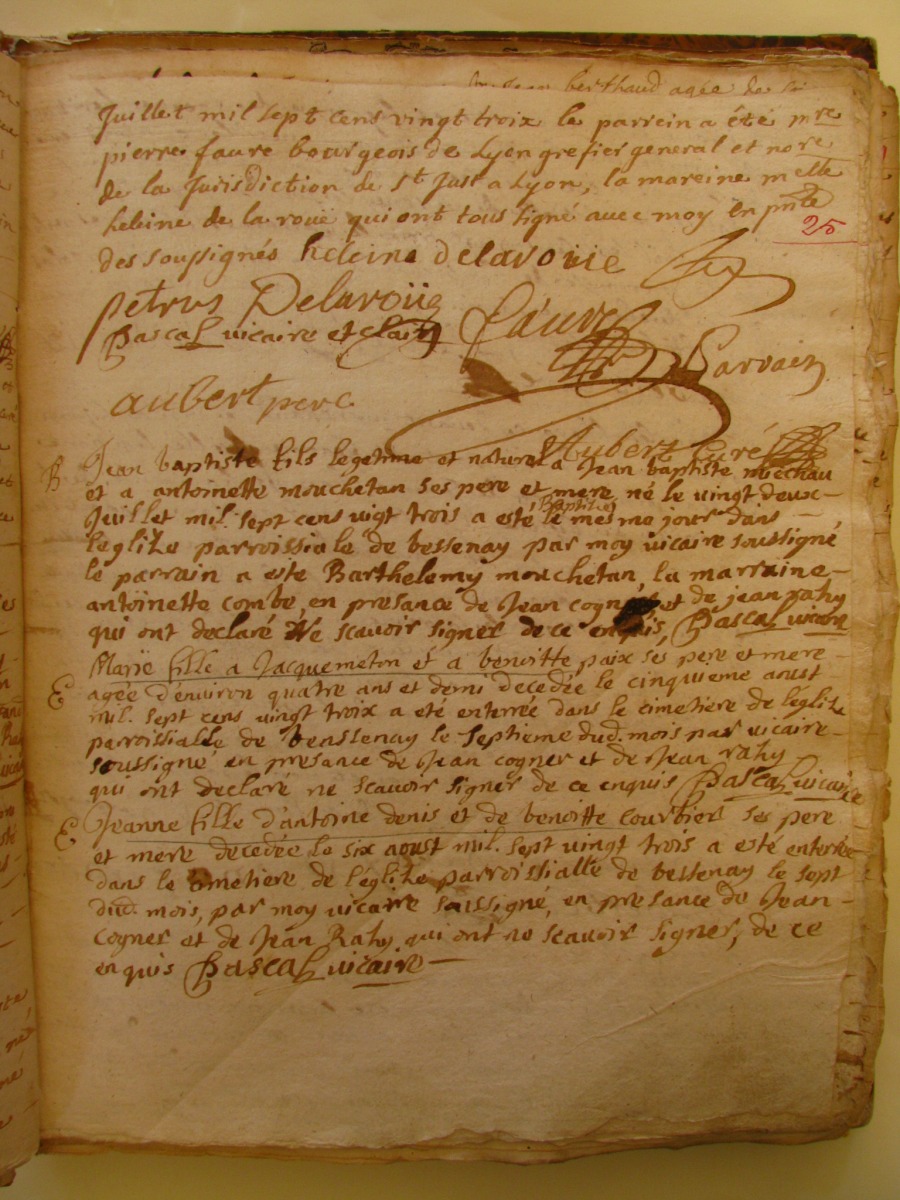 berthaud agée de
juillet mil sept cens vingt troix le parrein a été mre
pierre faure bourgeois de Lyon grefier general et nore
de la Jurisdiction de st Just a Lyon, la mareine melle
heleine de la rouë qui ont tous signé avec moy en pnte
25
des soussignés heleine delarouie
petrus Delaroüe
Pascal vicaire et faure
aubert pere
Aubert curé
B
Jean baptiste fils legetime et naturel a Jean baptiste
et a antoinette mouchetan ses pere et mere né le vingt deux
Baptisé
Juillet mil sept cens vigt trois a esté le mesme jour dans
leglize parroissiale de bessenay par moy vicaire soussigné
le parrain a este Barthelemy mouchetan, la marraine
antoinette combe, en presance de Jean et de jean rahy
qui ont declaré Ne scavoir signer de ce enquis, Pascal vicaire
Marie fille a Jacquemeton et a benoitte paix ses pere et mere
E
agée d'environ quatre ans et demi decedée le cinquieme aust
mil sept cens vingt troix a eté enterrée dans le cimetiere de l'églize
parroissialle de benssenay le septieme dud. mois par vicaire
soussigné en presance de Jean cogner et de Jean rahy
qui ont declaré ne scavoir signer de ce enquis Pascal vicaire
E
Jeanne fille d'antoine denis et de benoitte courbier ses pere
et mere decedée le six aoust mil sept vingt trois a esté enterrée
dans le cimetiere de l'églize parroissialle de bessenay le sept
dud. mois, par moy vicaire sousigné, en presance de Jean
cogner et de Jean Rahy qui ont ne scavoir signer, de ce
enquis Pascal vicaire